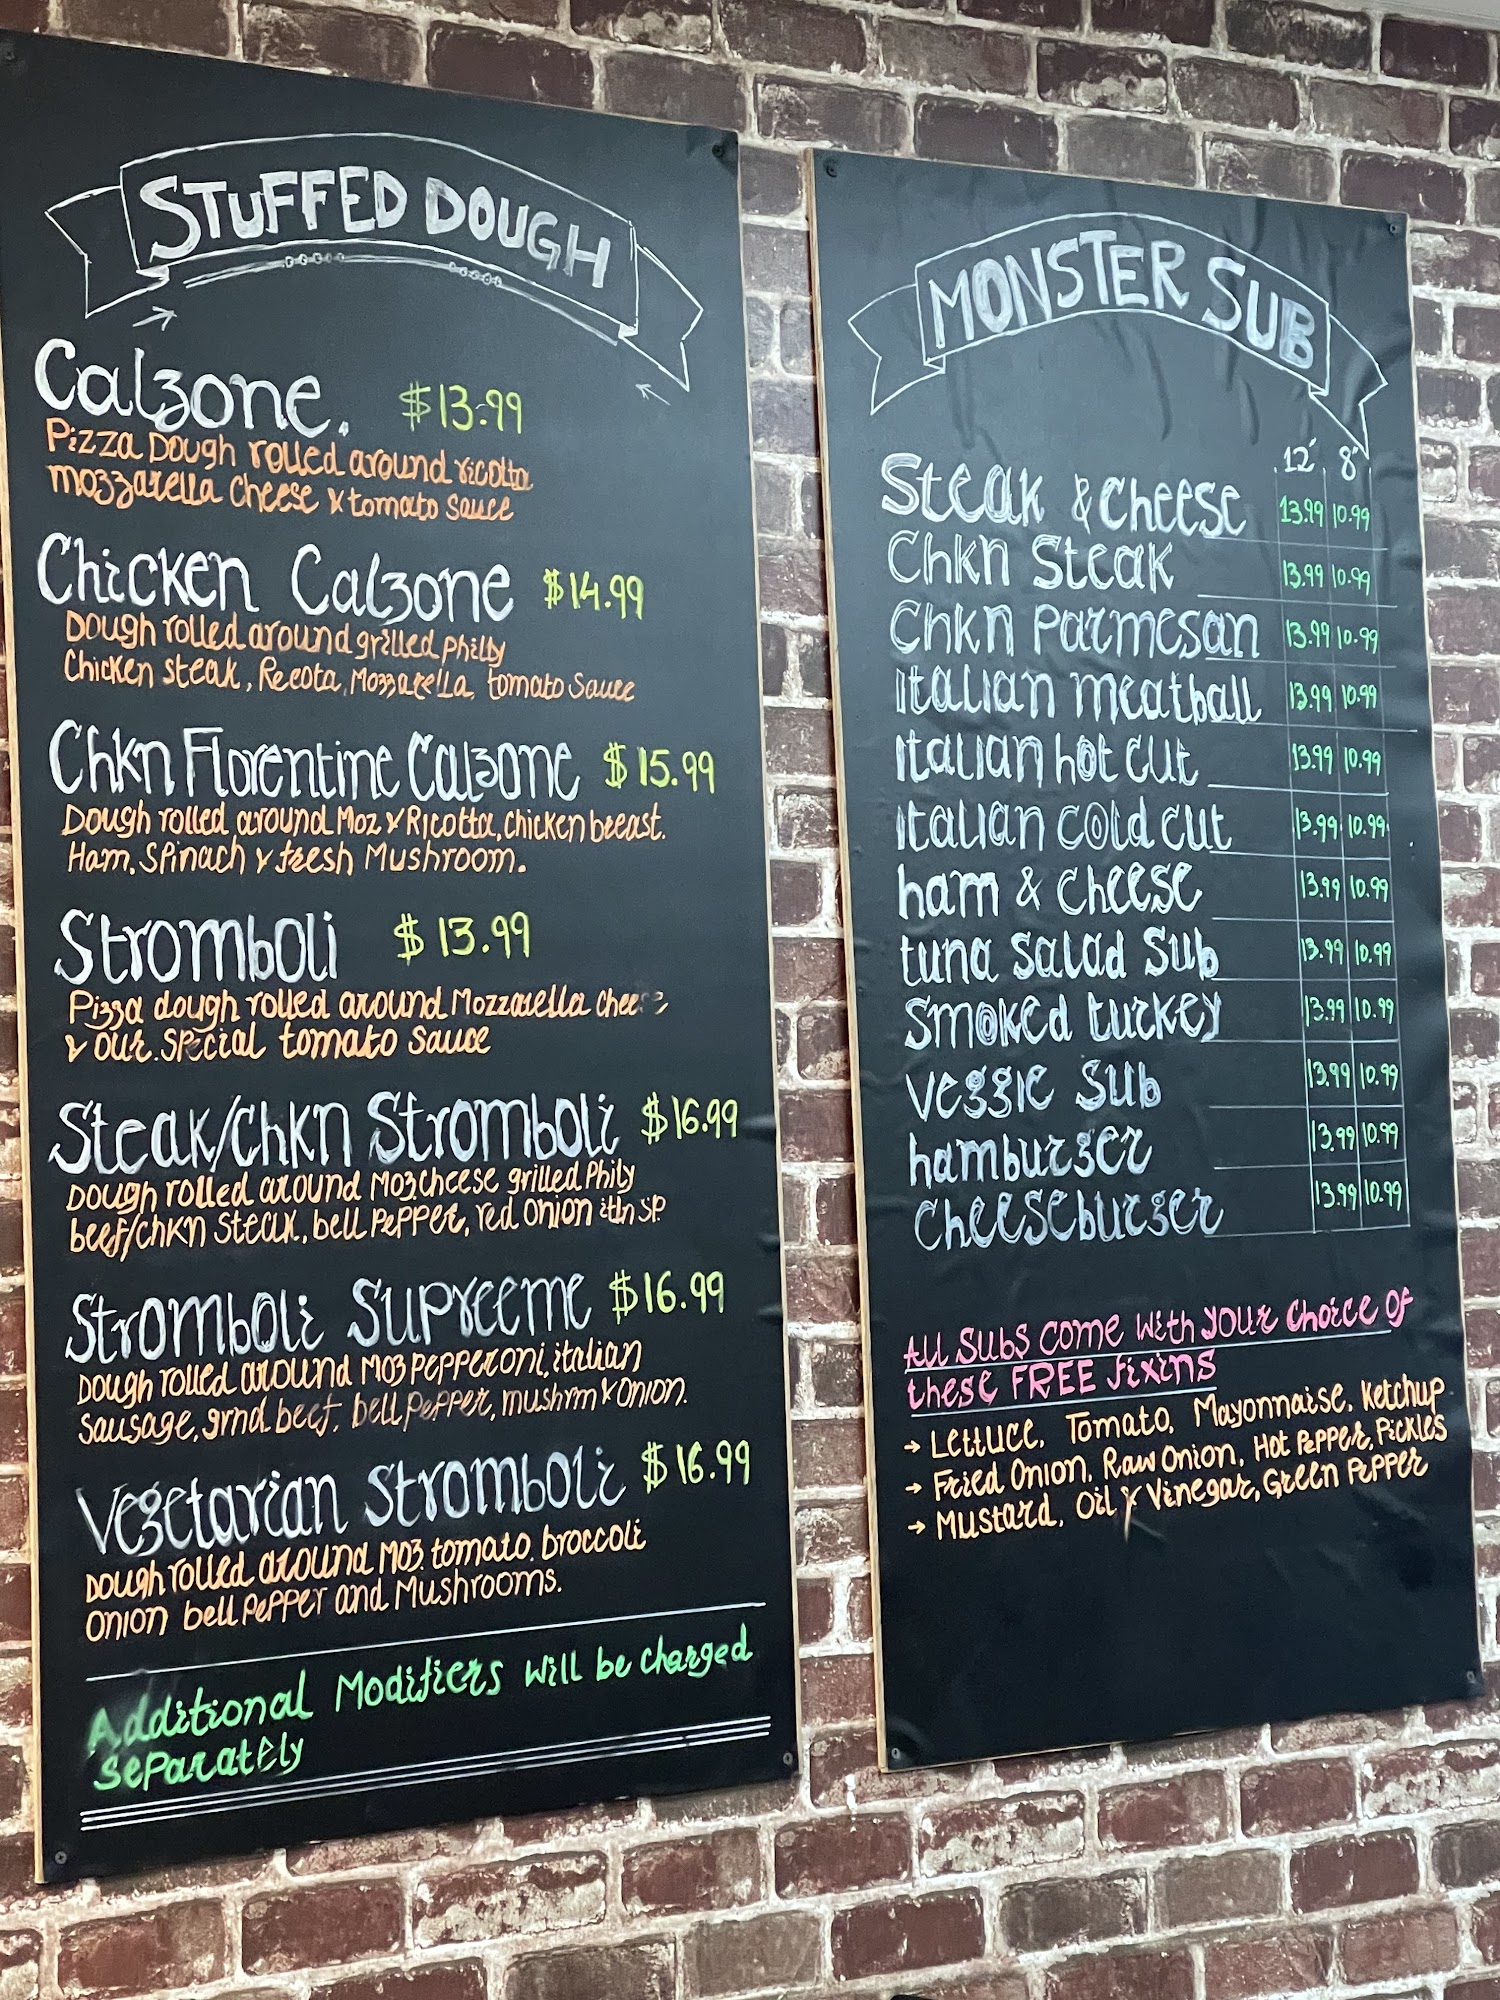 STUFFED DOUGH
Calzone. $13.99
Pizza Dough rolled around ricotta
mozzarella Cheese & tomato Sauce
Chicken Calzone $14.99
Dough rolled around grilled Philly
Chicken steak, Recota, Mozzarella, tomato Sauce
Chkn Florentine Calzone $15.99
Dough rolled around Moz & Ricotta, chicken breast.
Ham, Spinach & fresh Mushroom.
Stromboli $13.99
Pizza dough rolled around Mozzarella Cheese
& our special tomato sauce
Steak/Chkn Stromboli $16.99
Dough rolled around Moz cheese grilled Phily
beef/chkn steak, bell Pepper, red onion itln SP.
Stromboli Supreeme $16.99
Dough rolled around Moz Pepperoni, italian
Sausage, grnd beef, bell Pepper, mushrm & Onion.
Vegetarian Stromboli $16.99
Dough rolled around Moz. tomato. broccoli
Onion bell Pepper and Mushrooms.
Additional Modifiers will be charged
separately
MONSTER SUB
12" 8"
Steak & Cheese 13.99 10.99
Chkn Steak 13.99 10.99
Chkn Parmesan 13.99 10.99
Italian meatball 13.99 10.99
Italian hot cut 13.99 10.99
Italian Cold cut 13.99 10.99
ham & Cheese 13.99 10.99
tuna Salad Sub 13.99 10.99
Smoked turkey 13.99 10.99
Veggie Sub 13.99 10.99
hamburger 13.99 10.99
Cheeseburger 13.99 10.99
All Subs come with your choice of
these FREE fixins
→ Lettuce, Tomato, Mayonnaise, Ketchup
→ Fried Onion, Raw Onion, Hot Pepper, Pickles
→ Mustard, Oil & Vinegar, Green Pepper